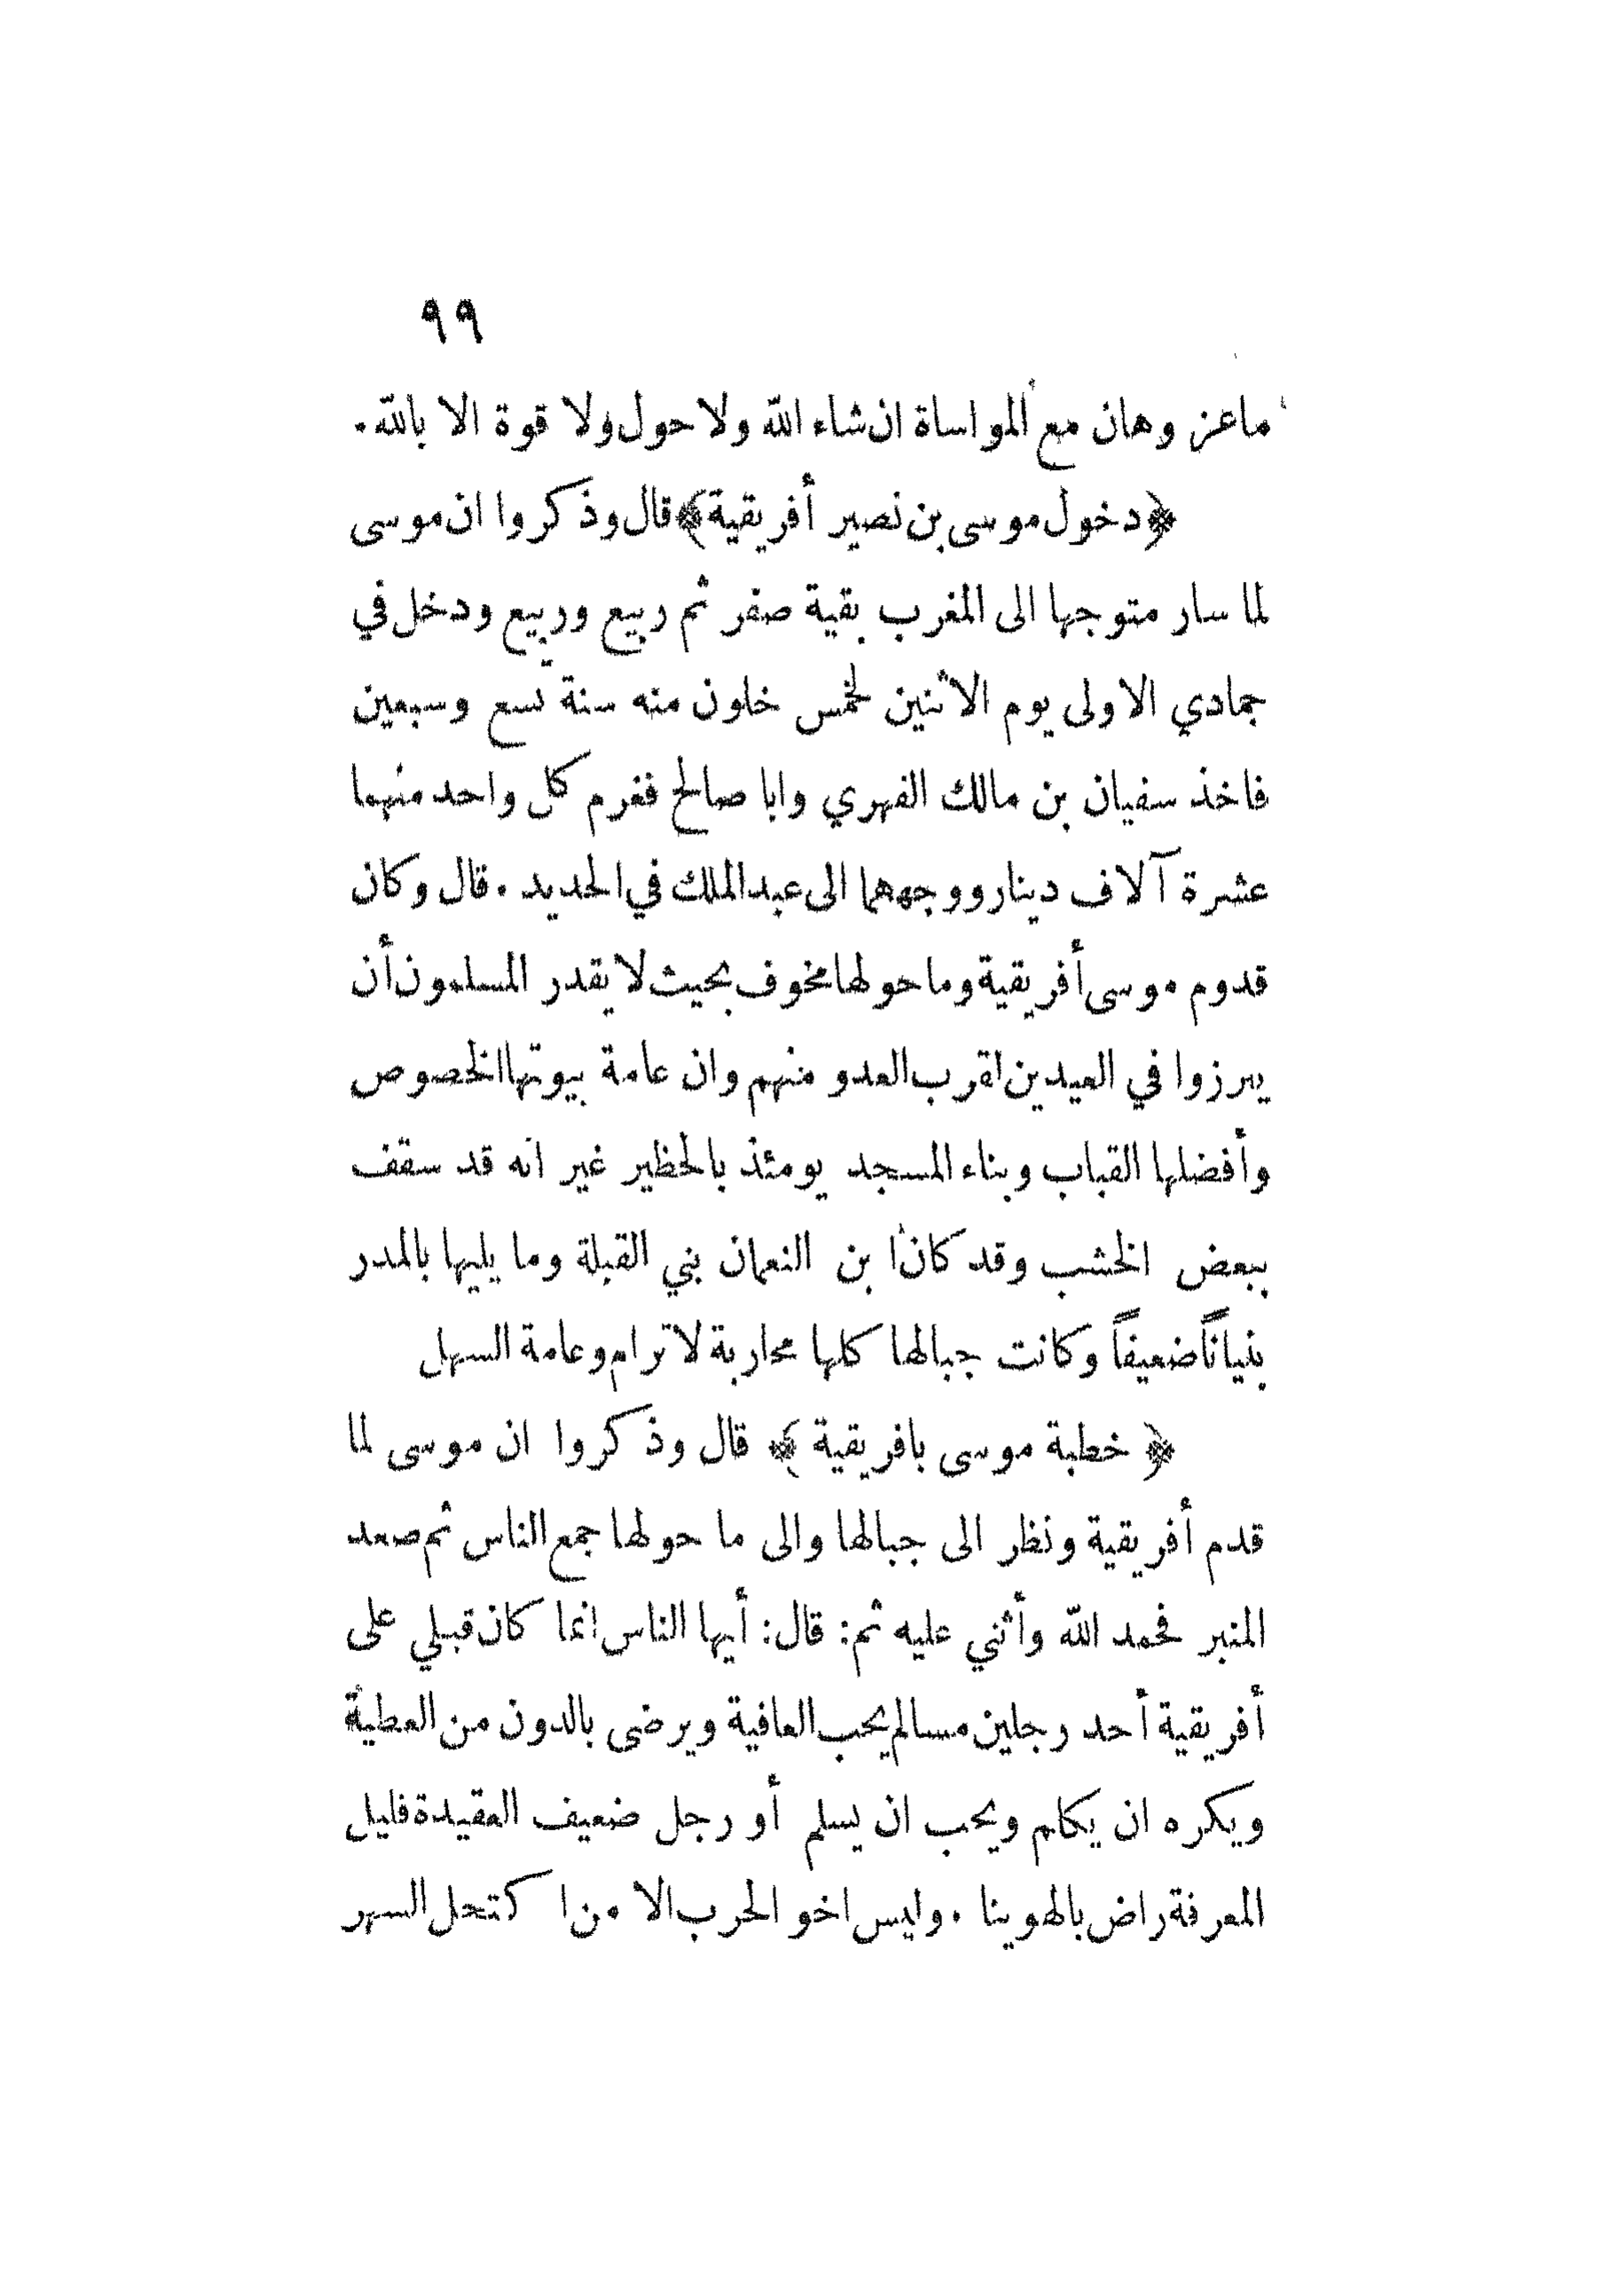 ٩٩
ماعز وهان مع المواساة ان شاء الله ولا حول ولا قوة الا بالله.
﴿دخول موسى بن نصير أفريقية﴾ قال وذكروا ان موسى
لما سار متوجها الى المغرب بقية صفر ثم ربيع وربيع ودخل في
جمادي الاولى يوم الاثنين لخمس خلون منه سنة تسع وسبعين
فاخذ سفيان بن مالك الفهري وابا صالح فغرم كل واحد منهما
عشرة آلاف دينار ووجههما الى عبد الملك في الحديد . قال وكان
قدوم موسى أفريقية وما حولها مخوف بحيث لا يقدر المسلمون أن
يبرزوا في العيدين لقرب العدو منهم وان عامة بيوتها الخصوص
وأفضلها القباب وبناء المسجد يومئذ بالحظير غير انه قد سقف
ببعض الخشب وقد كان ابن النعمان بني القبلة وما يليها بالمدر
بنياناً ضعيفاً وكانت جبالها كلها محاربة لا ترام وعامة السهل
﴿ خطبة موسى بافريقية ﴾ قال وذكروا ان موسى لما
قدم أفريقية ونظر الى جبالها والى ما حولها جمع الناس ثم صعد
المنبر فحمد الله وأثني عليه ثم: قال: أيها الناس انما كان قبلي على
أفريقية أحد رجلين مسالم يحب العافية ويرضى بالدون من العطية
ويكره ان يكلم ويحب ان يسلم أو رجل ضعيف العقيدة قليل
المعرفة راض بالهوينا . وليس اخو الحرب الا من اكتحل السهر